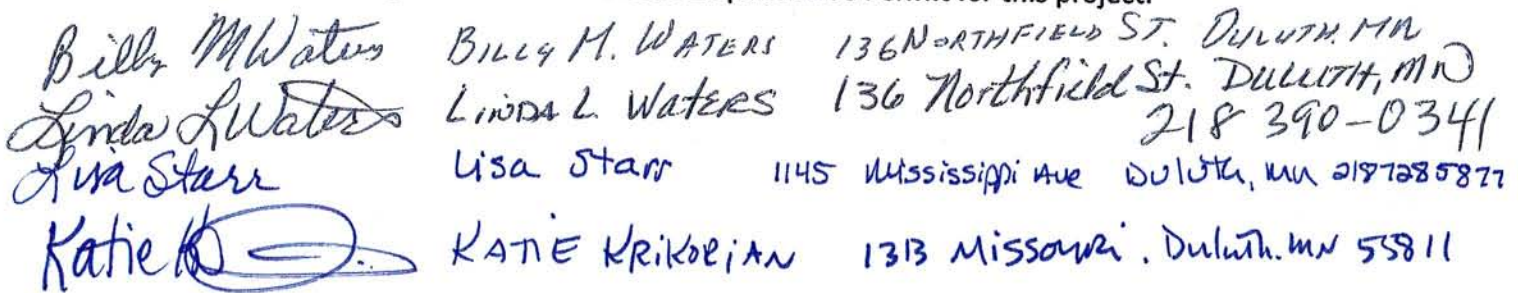 for this project.
Billy M Waters BILLY M. WATERS 136 NORTHFIELD ST. DULUTH. MN
Linda L Waters LINDA L. WATERS 136 Northfield St. DULUTH, MN
218 390-0341
Lisa Starr Lisa Starr 1145 Mississippi Ave Duluth, MN 2187285877
Katie KATIE KRIKORIAN 1313 Missouri. Duluth. MN 55811